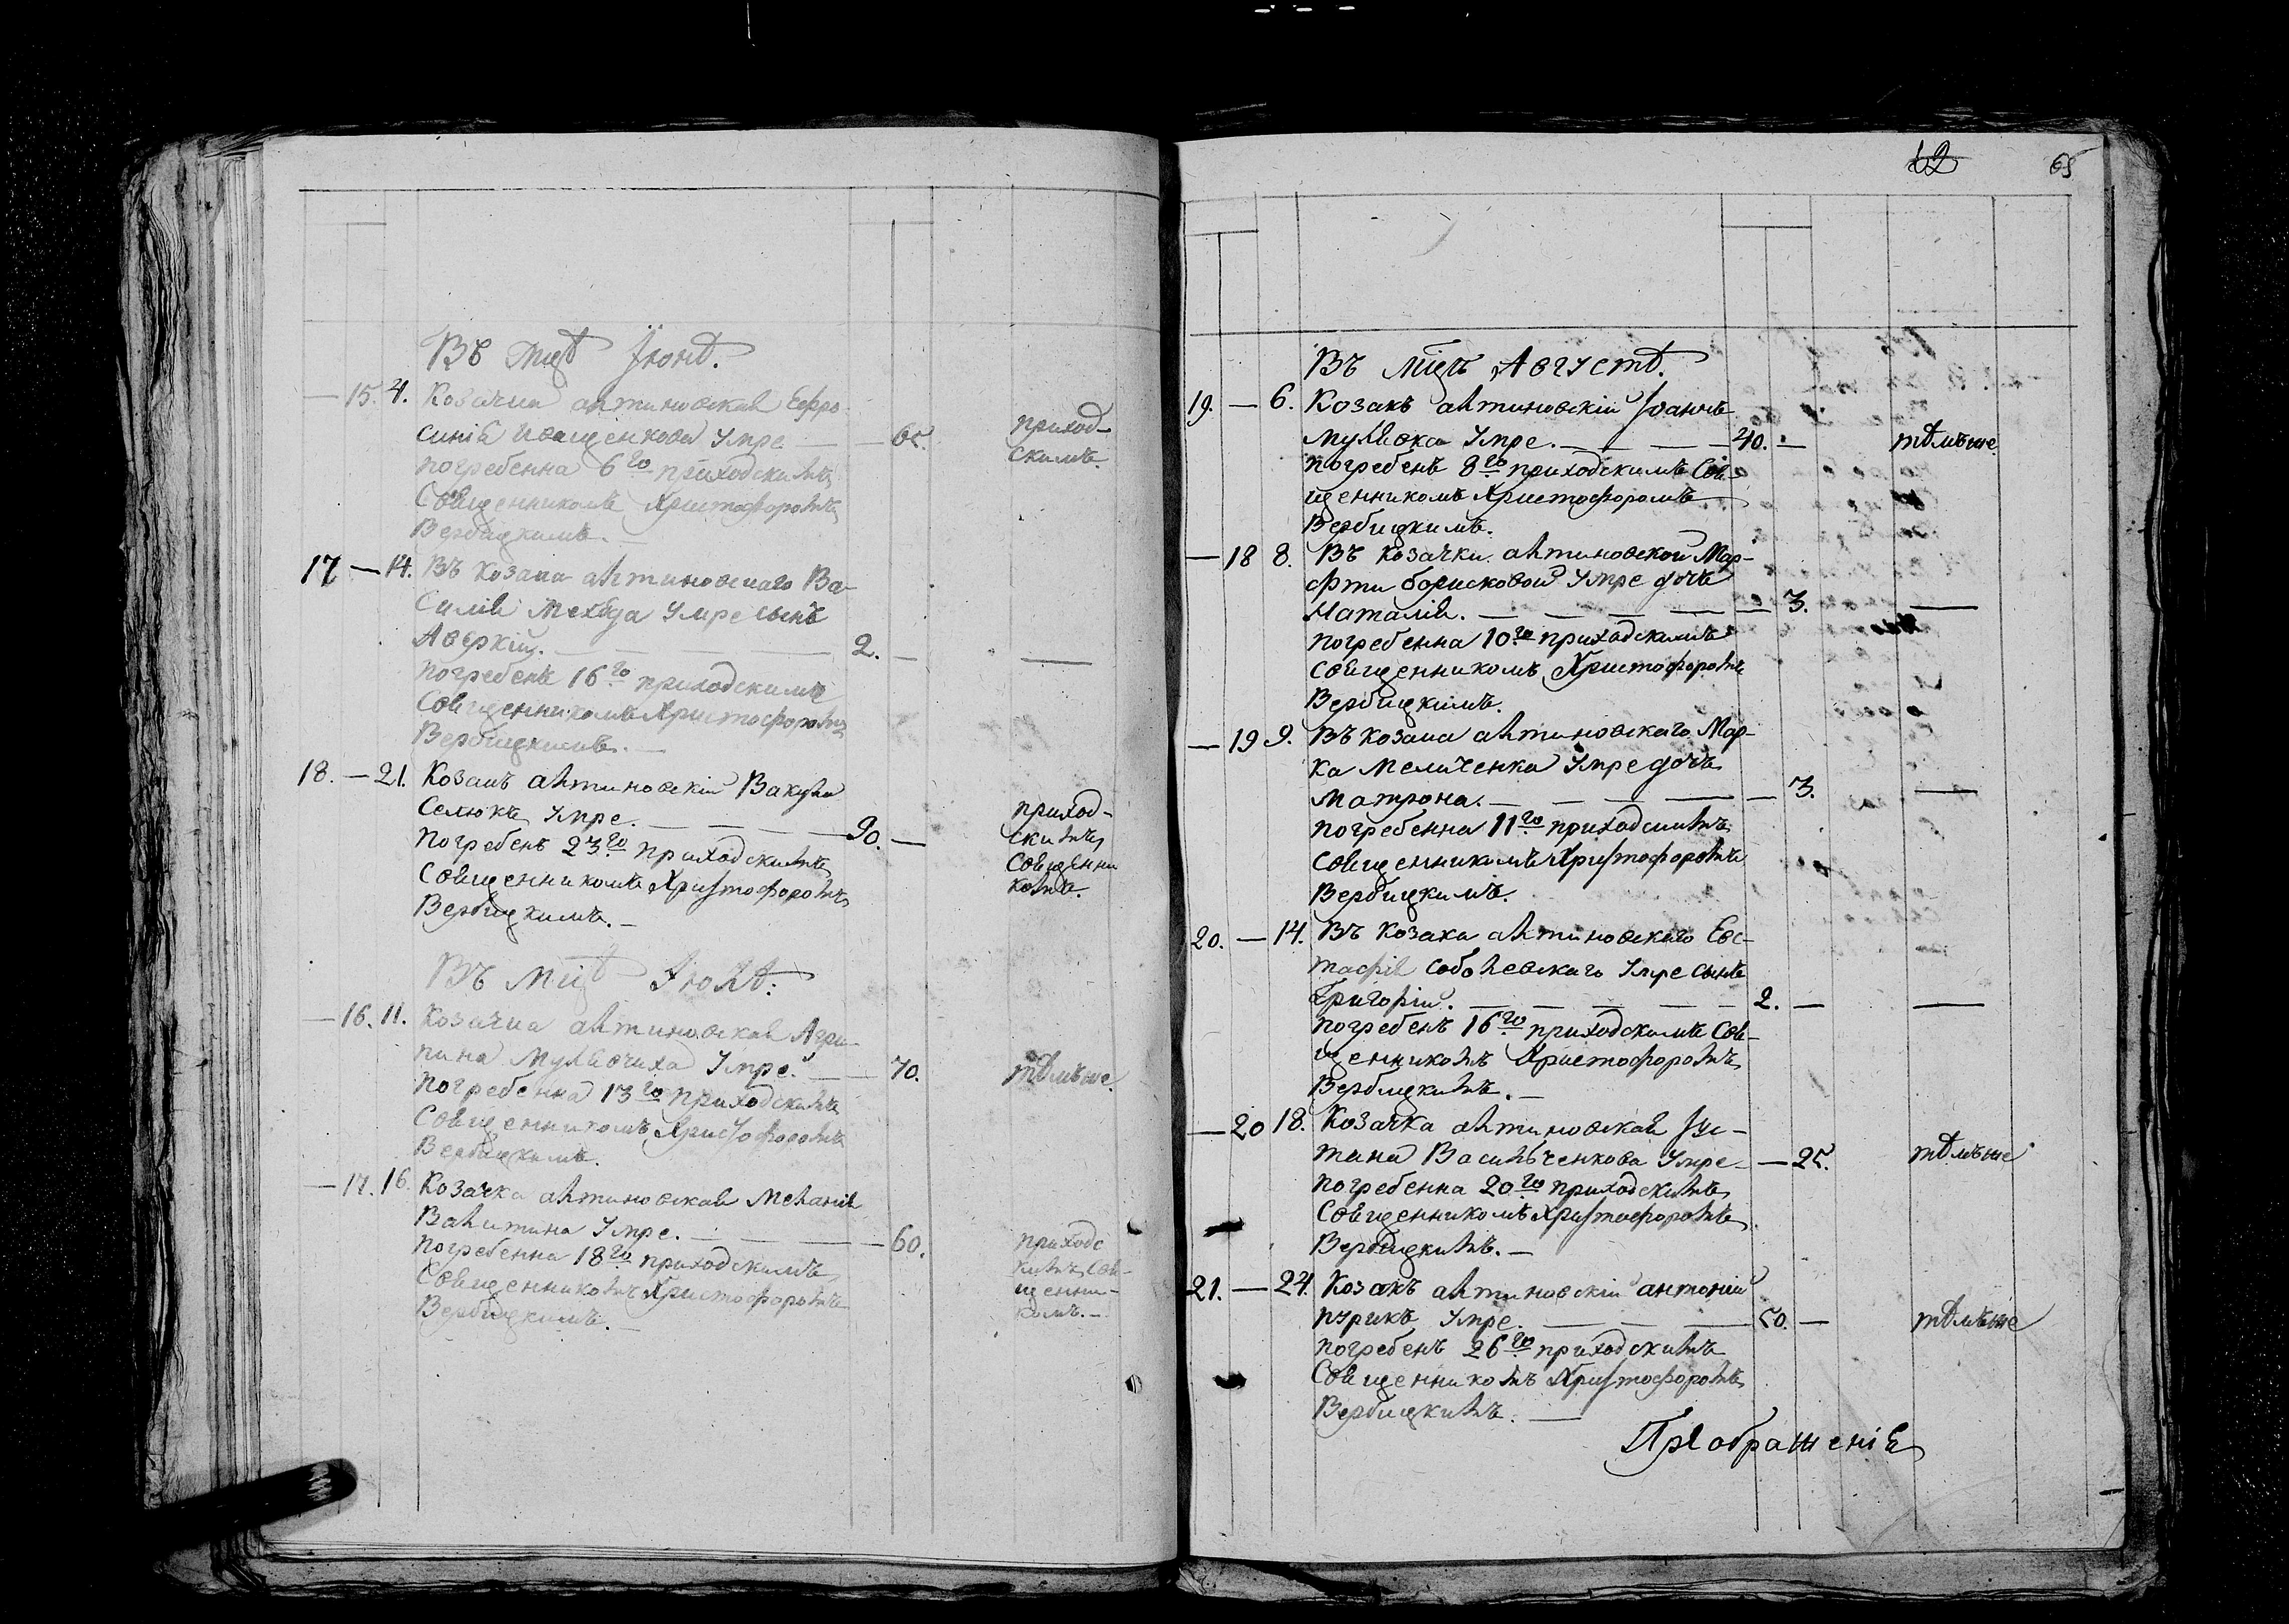 Въ мцѣ Іюнѣ.
— 15. 4. Козачка актиновская Ефро-
синія Иващенкова Умре — — 65. приход-
скимъ.
погребенна 6го приходскимъ
Священникомъ Христофоромъ
Вербицкимъ. —
17 — 14. Въ козака актиновскаго Ва-
силія Мехеда Умре сынъ
Аверкій. — — 2. — —
погребенъ 16го приходскимъ
Священникомъ Христофоромъ
Вербицкимъ. —
18. — 21. Козакъ актиновскій Вакула
Селюкъ Умре. — — — 90. — приход-
скимъ
священни
комъ.
погребенъ 23го приходскимъ
Священникомъ Христофоромъ
Вербицкимъ. —
Въ мцѣ Іюлѣ:
— 16. 11. Козачка актиновская Агри-
пина Мулявчиха Умре. — — 70. тѣмъже
погребенна 13го приходскимъ
Священникомъ Христофоромъ
Вербицкимъ.
— 17. 16. Козачка актиновская Меланія
Валитина Умре. — — — 60. приходс
кимъ свя-
щенни-
комъ. —
погребенна 18го приходскимъ
Священникомъ Христофоромъ
Вербицкимъ. —
62 65
Въ мцѣ Августѣ.
19. — 6. Козакъ актиновскій Іоаннъ
Мулявка Умре. — — — 40. — тѣмъже
погребенъ 8го приходскимъ Свя-
щенникомъ Христофоромъ
Вербицкимъ.
— 18 8. Въ козачки актиновской Мар-
фи Борисковой Умре дочь
Наталія. — — — — 3. —
погребенна 10го приходскимъ
священникомъ Христофоромъ
Вербицкимъ.
— 19 9. Въ козака актиновскаго Мар-
ка Меличенка Умре дочь
Матрона. — — — — 3. —
погребенна 11го приходскимъ
священникомъ Христофоромъ
Вербицкимъ.
20. — 14. Въ козака актиновскаго Евс-
тафія Соболевскаго Умре сынъ
Григорій. — — — — 2. — —
погребенъ 16го приходскимъ Свя-
щенникомъ Христофоромъ
Вербицкимъ. —
— 20 18. Козачка актиновская Іус-
тина Васильченкова Умре — — 25. тѣмъже
погребенна 20го приходскимъ
Священникомъ Христофоромъ
Вербицкимъ. —
21. — 24. Козакъ актиновскій антоній
пурикъ Умре. — — — 50. — тѣмъже
погребенъ 26го приходскимъ
Священникомъ Христофоромъ
Вербицкимъ. —